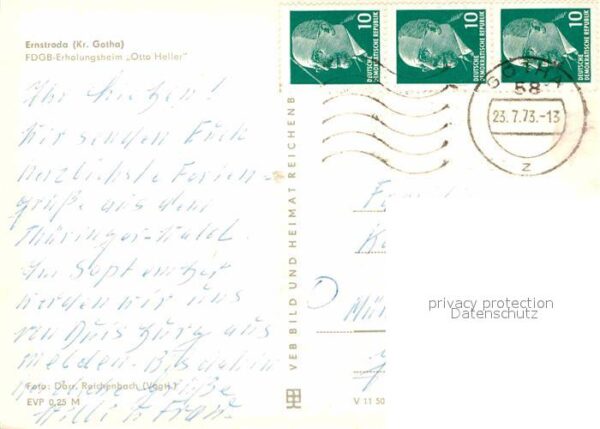 Ernstroda (Kr. Gotha)
FDGB-Erholungsheim „Otto Heller"
Ihr Lieben!
Wir senden Euch
herzlichste Ferien-
grüße aus dem
Thüringer-Wald.
Im September
werden wir uns
von Duisburg aus
melden. Bis dahin
herzliche Grüße
Willi u. Frau
Foto: Dörr, Reichenbach (Vogtl.)
EVP 0,25 M
VEB BILD UND HEIMAT REICHENB
V 11 50
10
DEUTSCHE DEMOKRATISCHE REPUBLIK
10
DEUTSCHE DEMOKRATISCHE REPUBLIK
10
DEUTSCHE DEMOKRATISCHE REPUBLIK
GOTHA
58
23.7.73.-13
z
Mün
privacy protection
Datenschutz